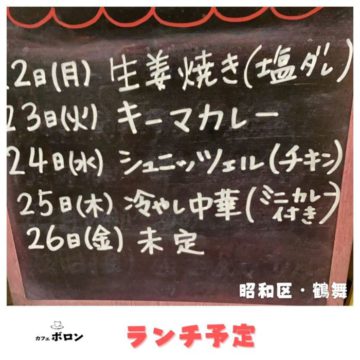 22日(月) 生姜焼き(塩ダレ)
23日(火) キーマカレー
24日(水) シュニッツェル(チキン)
25日(木) 冷やし中華(ミニカレー付き)
26日(金) 未定
昭和区・鶴舞
カフェ ボロン
ランチ予定